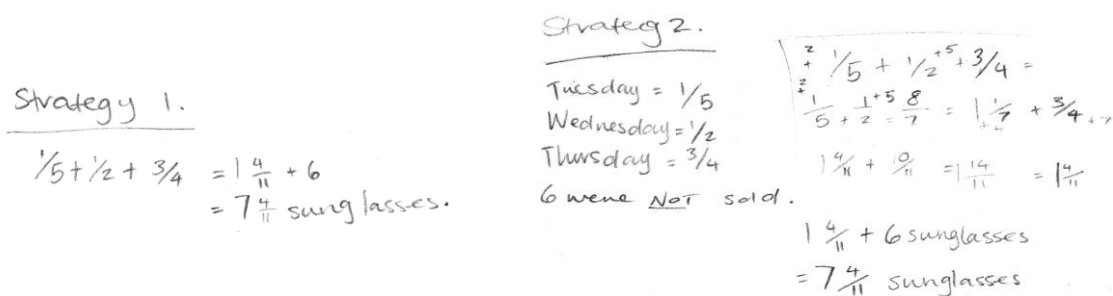 Strategy 1.
1/5 + 1/2 + 3/4 = 1 4/11 + 6
= 7 4/11 sunglasses.
Strateg 2.
Tuesday = 1/5
Wednesday = 1/2
Thursday = 3/4
6 were NOT sold.
2+ 1/5 + 1/2 +5 + 3/4 =
2+ 1/5 + 1/2 +5 = 8/7 = 1 1/7 + 3/4 +7
1 4/11 + 10/11 = 1 14/11 = 1 4/11
1 4/11 + 6 sunglasses
= 7 4/11 sunglasses